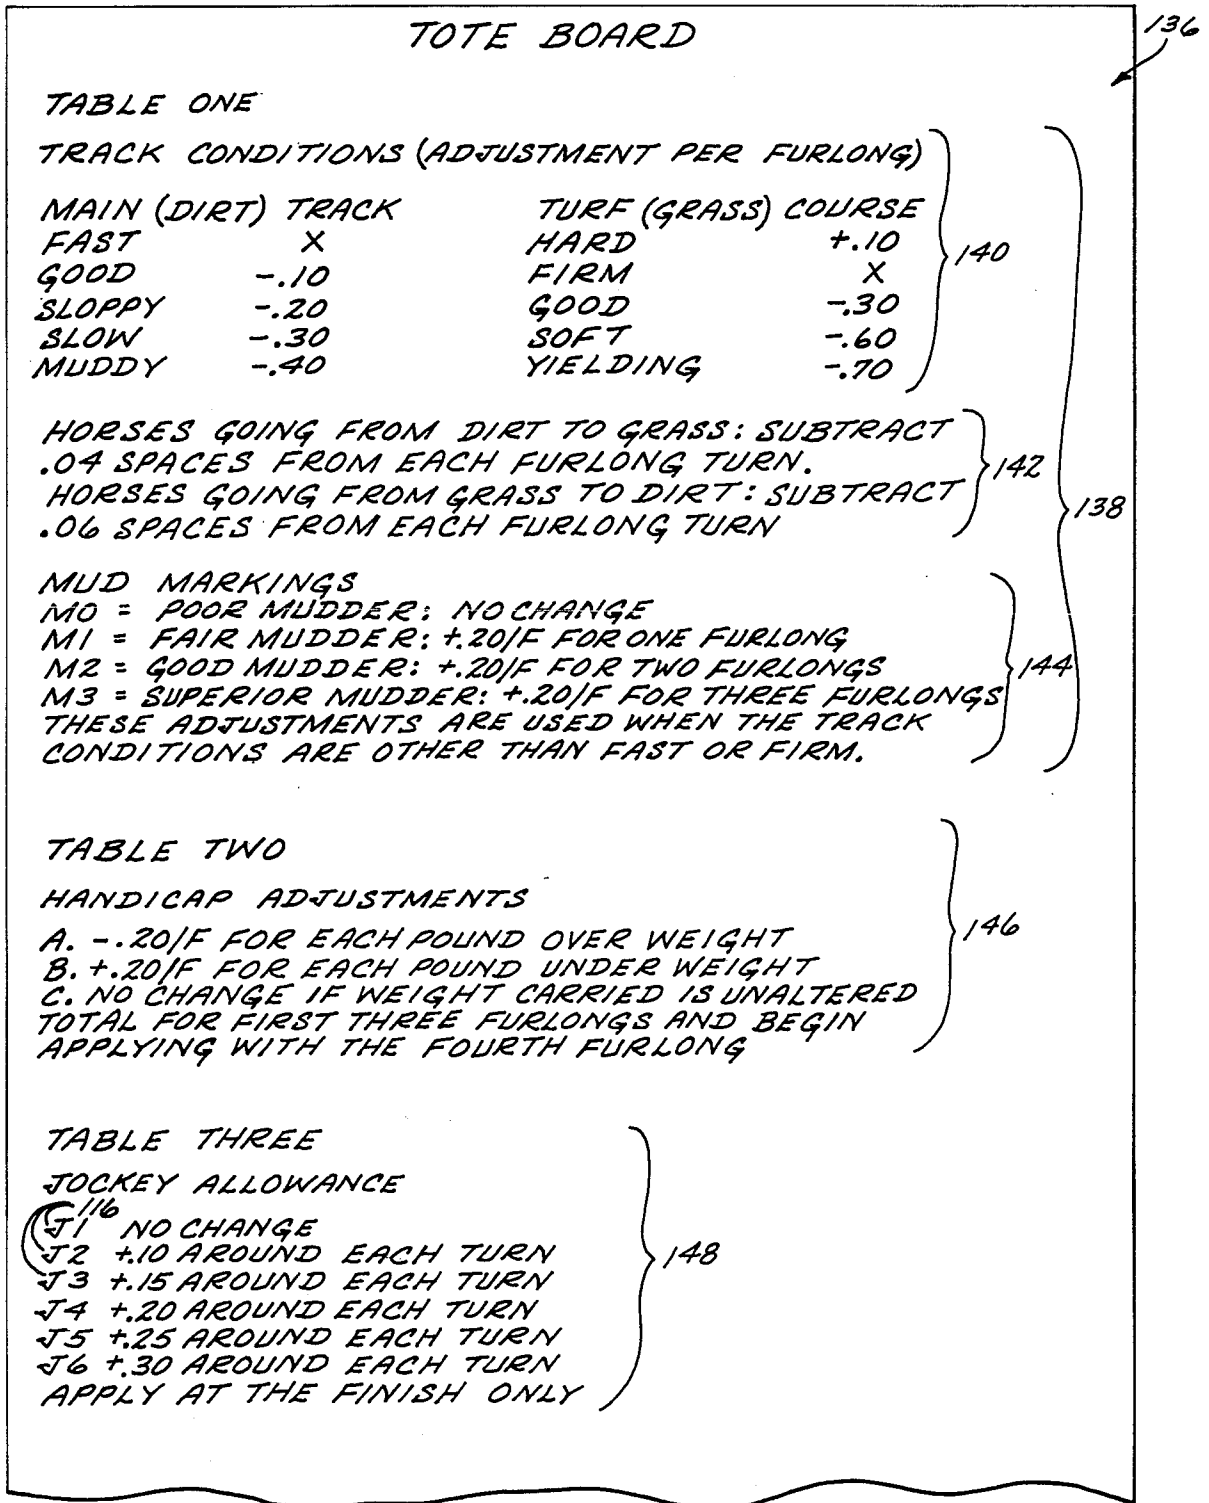 TOTE BOARD
136
TABLE ONE
TRACK CONDITIONS (ADJUSTMENT PER FURLONG)
MAIN (DIRT) TRACK TURF (GRASS) COURSE
FAST X HARD +.10
140
GOOD -.10 FIRM X
SLOPPY -.20 GOOD -.30
SLOW -.30 SOFT -.60
MUDDY -.40 YIELDING -.70
HORSES GOING FROM DIRT TO GRASS: SUBTRACT
.04 SPACES FROM EACH FURLONG TURN.
142
HORSES GOING FROM GRASS TO DIRT: SUBTRACT
138
.06 SPACES FROM EACH FURLONG TURN
MUD MARKINGS
M0 = POOR MUDDER: NO CHANGE
M1 = FAIR MUDDER: +.20/F FOR ONE FURLONG
M2 = GOOD MUDDER: +.20/F FOR TWO FURLONGS
144
M3 = SUPERIOR MUDDER: +.20/F FOR THREE FURLONGS
THESE ADJUSTMENTS ARE USED WHEN THE TRACK
CONDITIONS ARE OTHER THAN FAST OR FIRM.
TABLE TWO
HANDICAP ADJUSTMENTS
146
A. -.20/F FOR EACH POUND OVER WEIGHT
B. +.20/F FOR EACH POUND UNDER WEIGHT
C. NO CHANGE IF WEIGHT CARRIED IS UNALTERED
TOTAL FOR FIRST THREE FURLONGS AND BEGIN
APPLYING WITH THE FOURTH FURLONG
TABLE THREE
JOCKEY ALLOWANCE
116
J1 NO CHANGE
J2 +.10 AROUND EACH TURN
148
J3 +.15 AROUND EACH TURN
J4 +.20 AROUND EACH TURN
J5 +.25 AROUND EACH TURN
J6 +.30 AROUND EACH TURN
APPLY AT THE FINISH ONLY